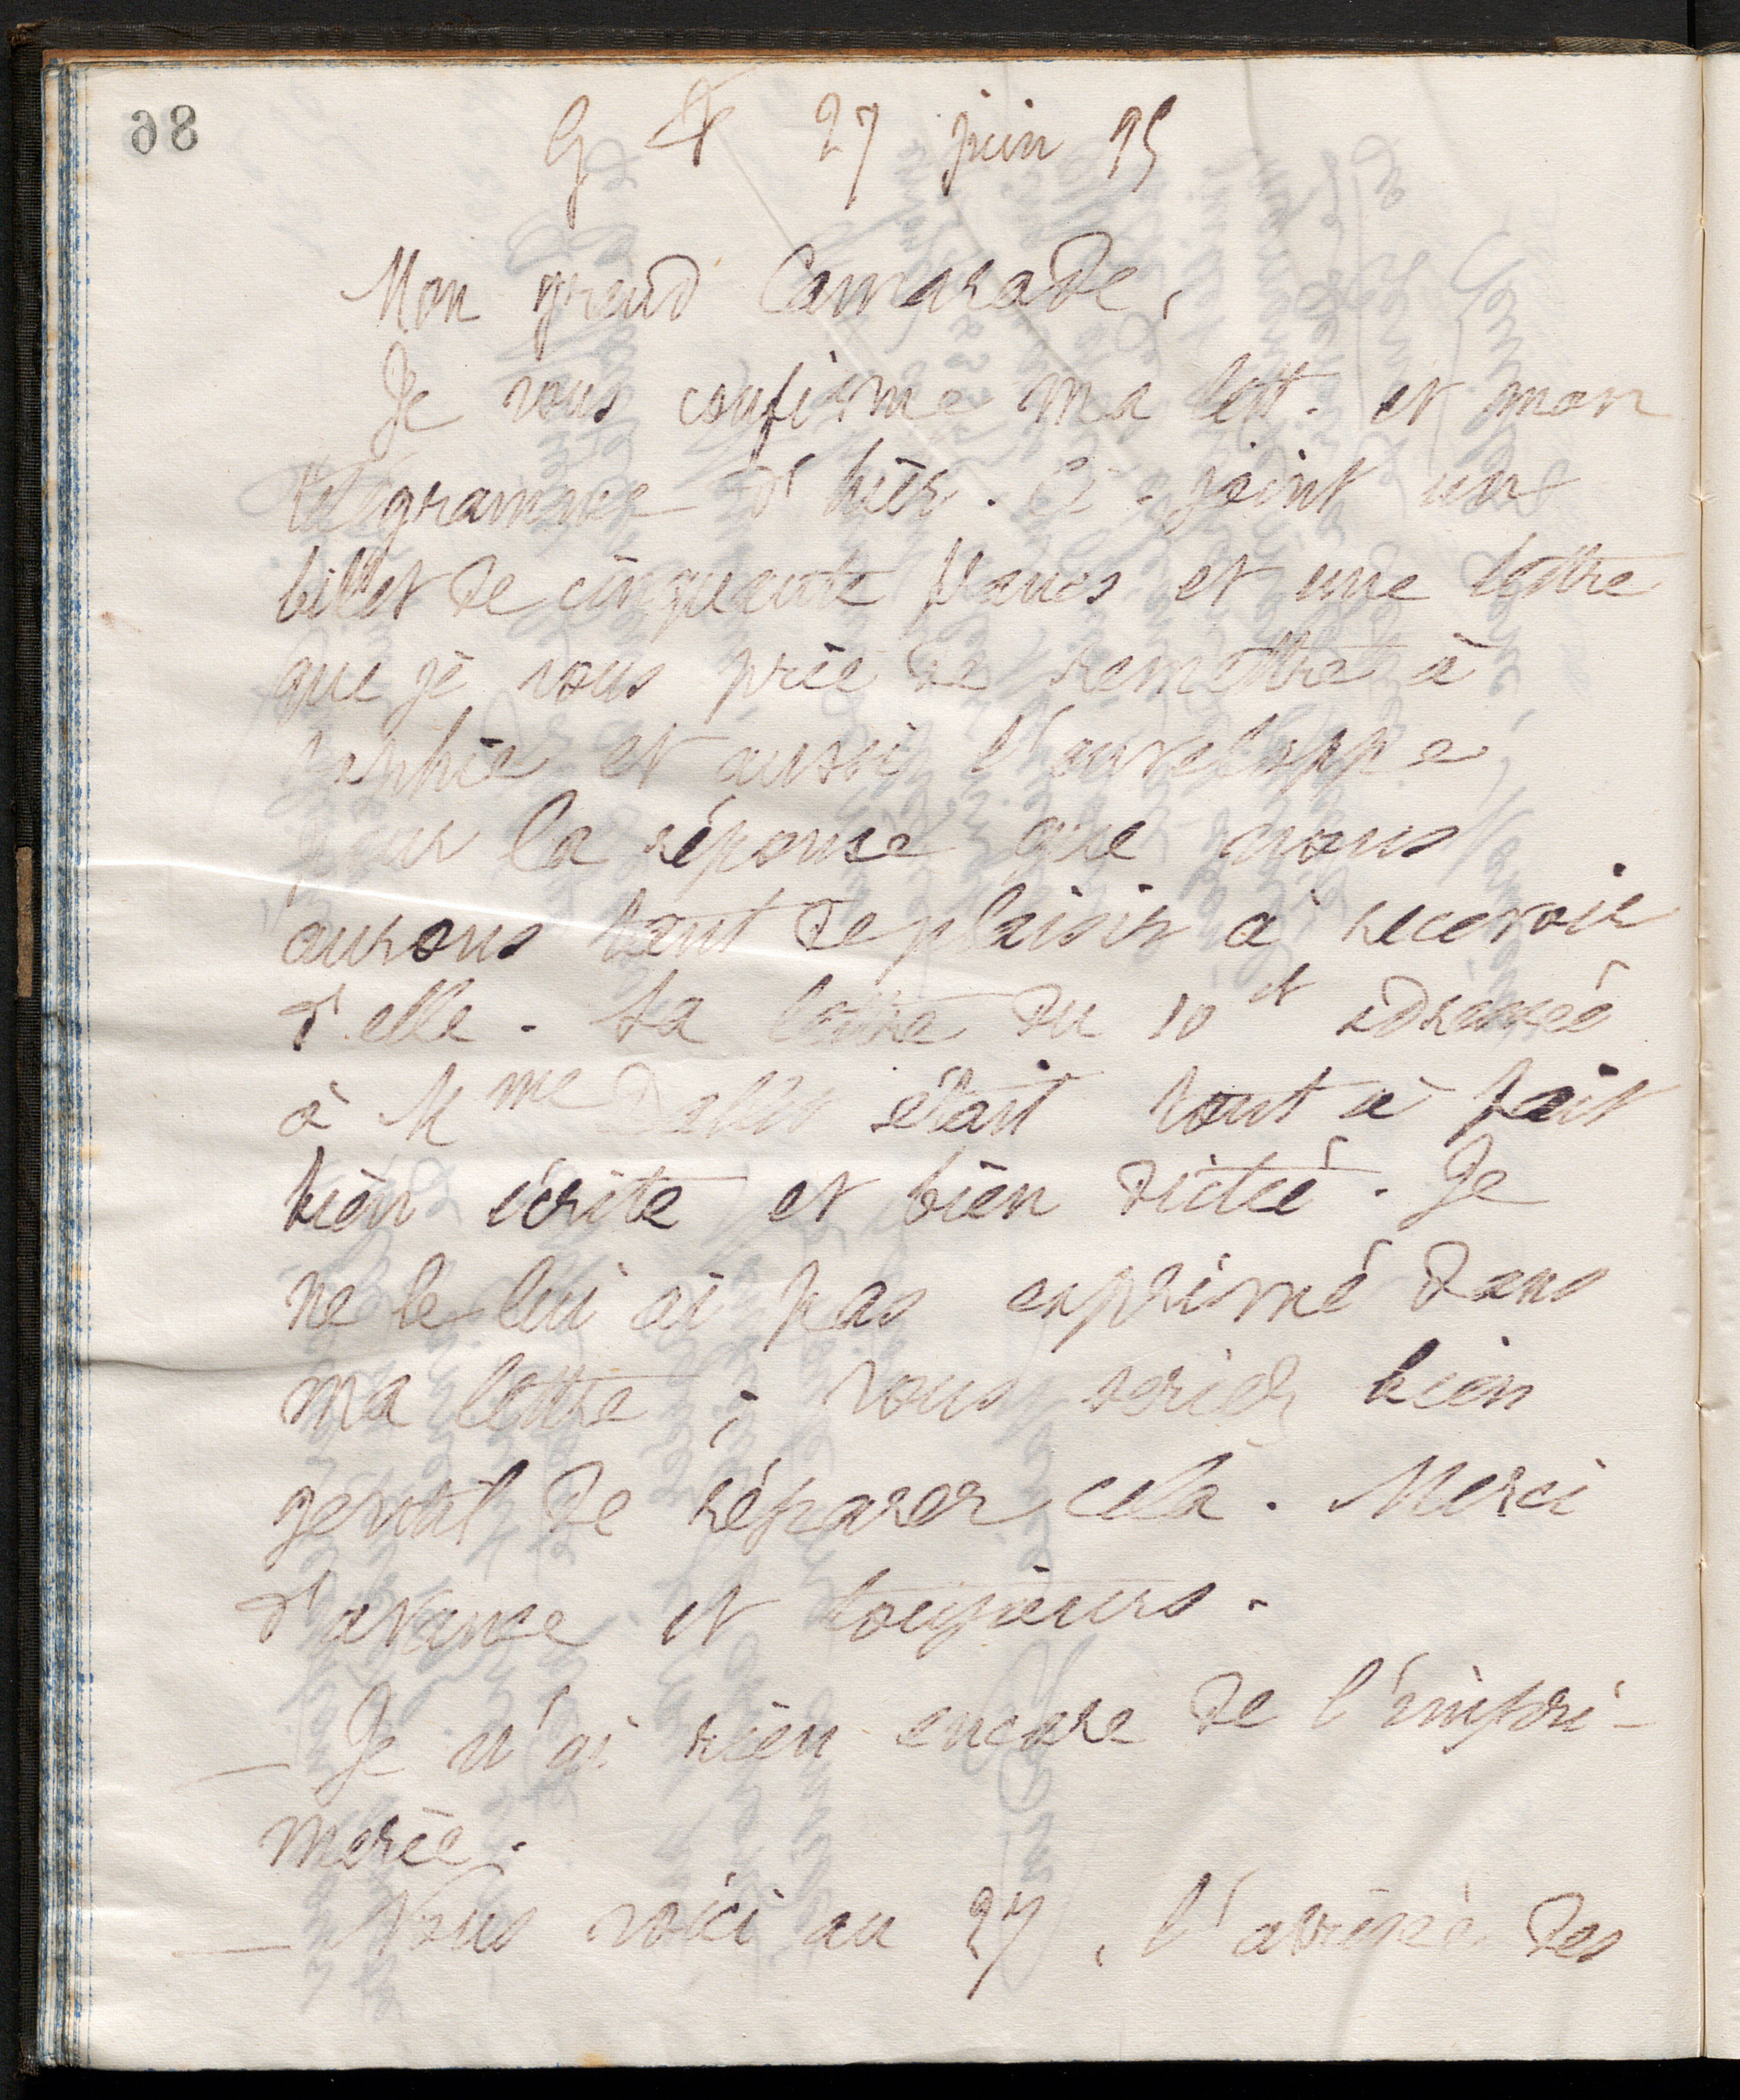 98
G 27 juin 95
Mon grand Camarade,
Je vous confirme ma lett. et mon
télégramme d'hier. Ci-joint un
billet de cinquante francs et une lettre
que je vous prie de remettre à
Sophie et aussi l'enveloppe
pour la réponse que nous
aurons tant de plaisir à recevoir
d'elle. Sa lettre du 10 ct adressée
à Mme était tout à fait
bien écrite et bien dictée. Je
ne le lui ai pas exprimé dans
ma lettre ; vous seriez bien
gentil de réparer cela. Merci
d'avance et toujours.
— Je n'ai rien encore de l'impri-
merie.
— Nous voici au 27, l'arrivée des